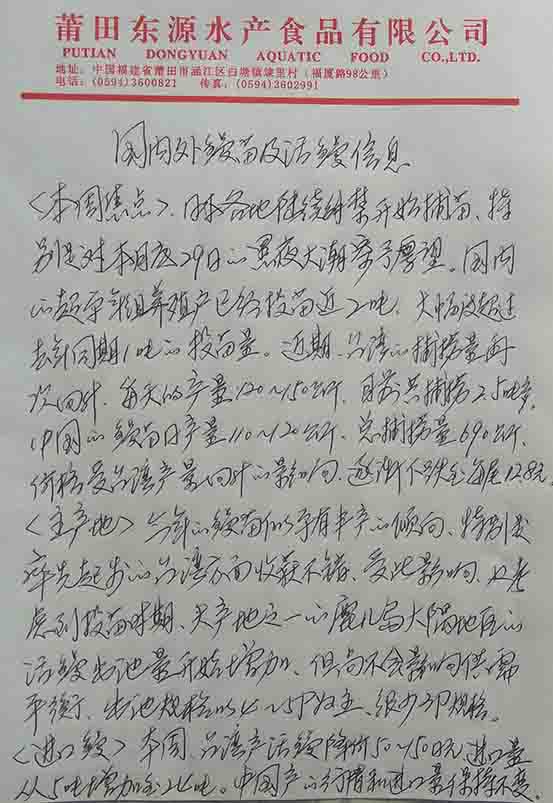 莆田东源水产食品有限公司
PUTIAN DONGYUAN AQUATIC FOOD CO.,LTD.
地址：中国福建省莆田市涵江区白塘镇埭里村（福厦路98公里）
电话：(0594)3600821 传真：(0594)3602991
国内外鳗苗及活鳗信息
<本周焦点>、日本各地陆续解禁开始捕苗、特
别是对本月底29日的黑夜大潮寄予厚望。国内
的超早组养殖户已经投苗近2吨、大幅度超过
去年同期1吨的投苗量。近期、台湾的捕捞量再
次回升、每天的产量120～150公斤、目前总捕捞2.5吨多、
中国的鳗苗日产量110～120公斤、总捕捞量690公斤、
价格受台湾产量回升的影响、逐渐下跌至每尾12.8元。
<主产地>今年的鳗苗似乎有丰产的倾向、特别是
率先起步的台湾方面收获不错、受此影响、又考
虑到投苗时期、大产地之一的鹿儿岛大隅地区的
活鳗出池量开始增加、但尚不会影响供需
平衡、出池规格以4～5P为主、很少3P规格。
<进口鳗>本周、台湾产活鳗降价50～150日元、进口量
从5吨增加至24吨。中国产的行情和进口量保持不变、